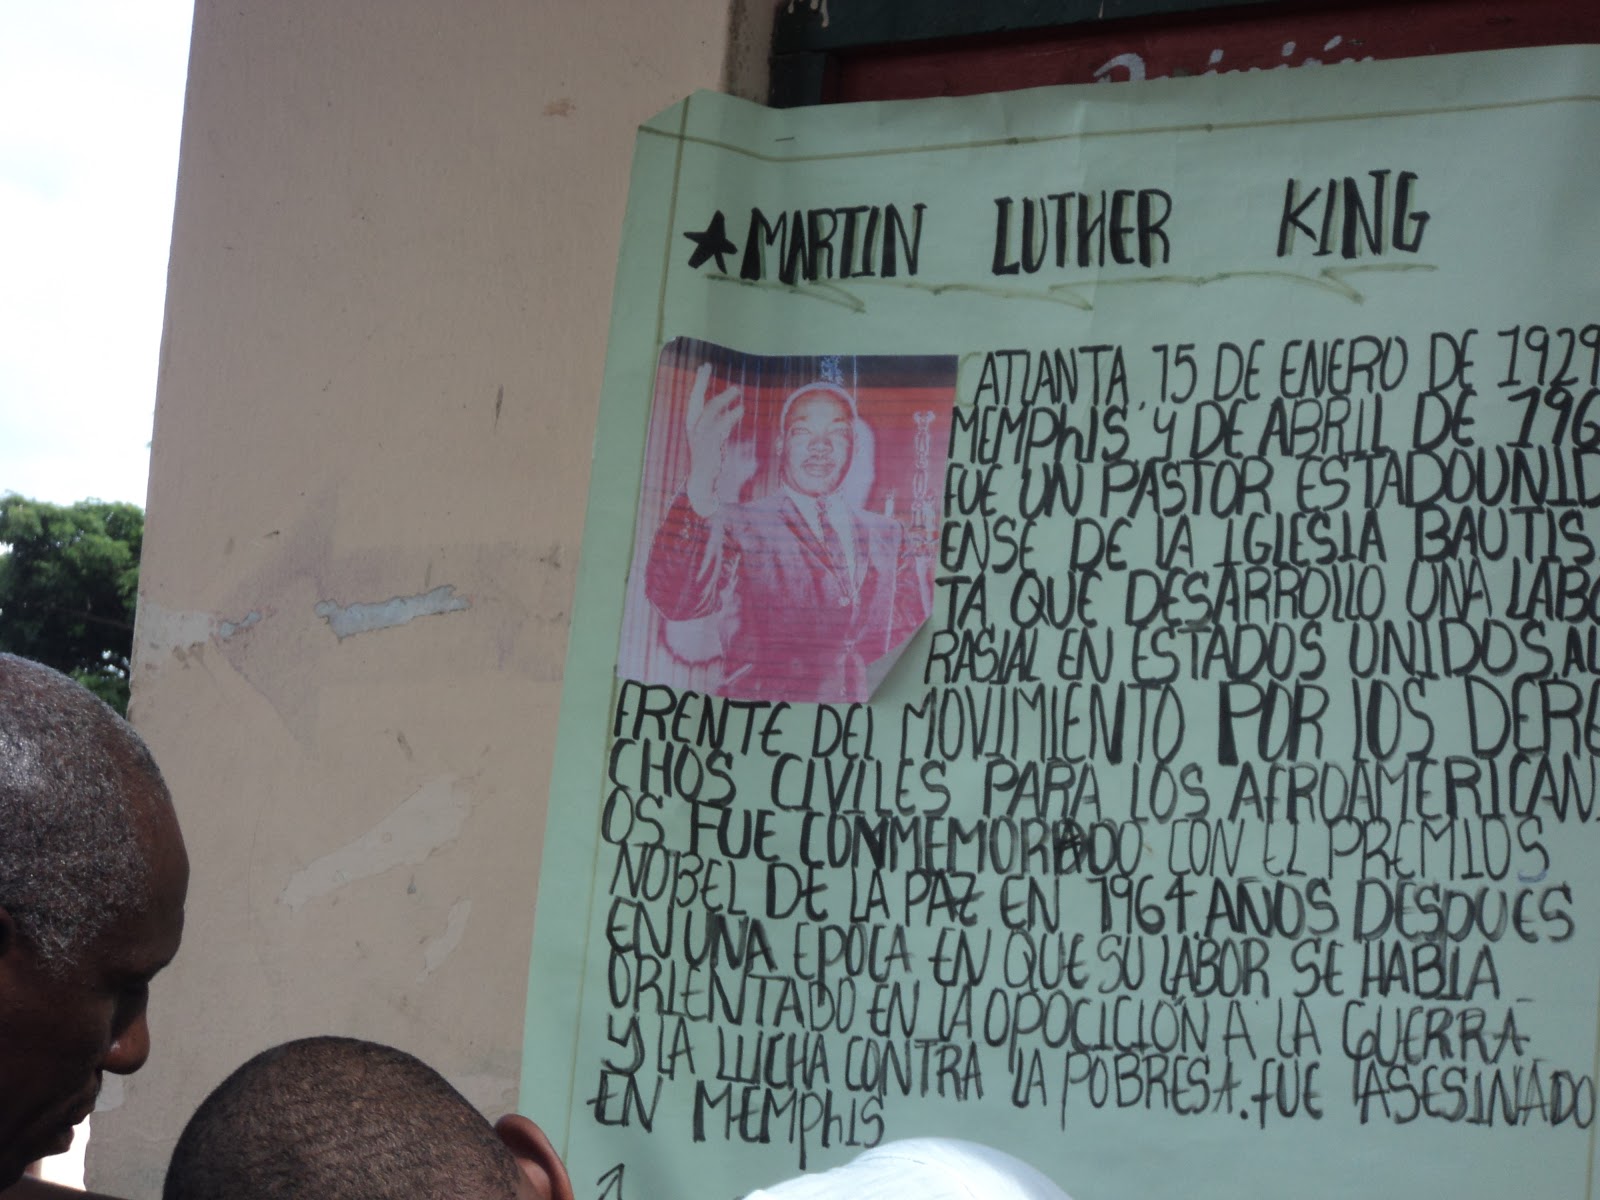 Opinión
★MARTIN LUTHER KING
ATLANTA, 15 DE ENERO DE 1929
MEMPhIS, 4 DE ABRIL DE 196
FUE UN PASTOR ESTADOUNID
ENSE DE LA IGLESIA BAUTIS
TA QUE DESARROLLO UNA LABO
RASIAL EN ESTADOS UNIDOS, AL
FRENTE DEL MOVIMIENTO POR LOS DERE
CHOS CIVILES PARA LOS AFROAMERICAN
OS FUE CONMEMORADO CON EL PREMIOS
NOBEL DE LA PAZ EN 1964. AÑOS DESPUES
EN UNA EPOCA EN QUE SU LABOR SE HABIA
ORIENTADO EN LA OPOCICIÓN A LA GUERRA
Y LA LUCHA CONTRA LA POBRESA. FUE ASESINADO
EN MEMPhIS